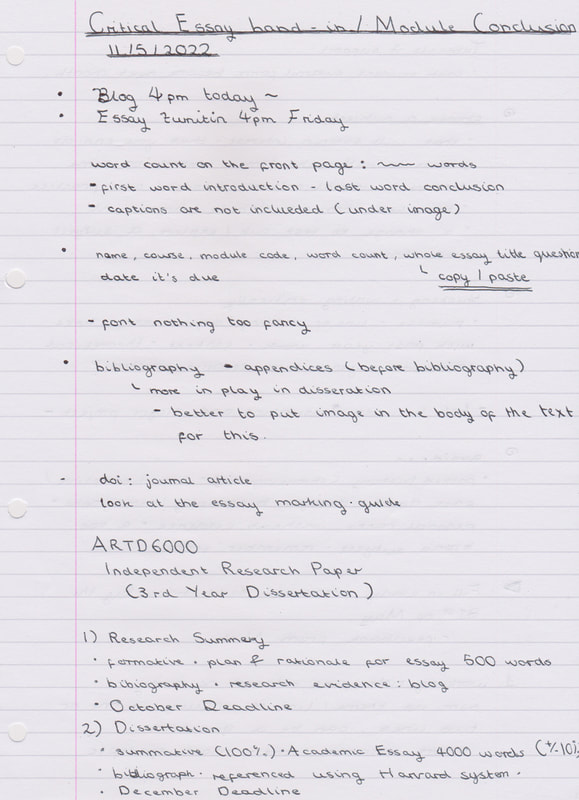 Critical Essay hand-in / Module Conclusion
11/5/2022
• Blog 4pm today ~
• Essay turnitin 4pm Friday
word count on the front page: ~~ words
- first word introduction - last word conclusion
- captions are not inclueded (under image)
• name, course, module code, word count, whole essay title question
date it's due ↳ copy / paste
- font nothing too fancy
• bibliography - appendices (before bibliography)
↳ more in play in disseration
- better to put image in the body of the text
for this.
- doi: journal article
look at the essay marking guide
ARTD6000
Independent Research Paper
(3rd Year Dissertation)
1) Research Summary
• formative. plan & rationale for essay 500 words
• bibiography. research evidence: blog
• October Deadline
2) Dissertation
• summative (100%). Academic Essay 4000 words (+/-10%
• bibliograph. referenced using Harvard system.
• December Deadline